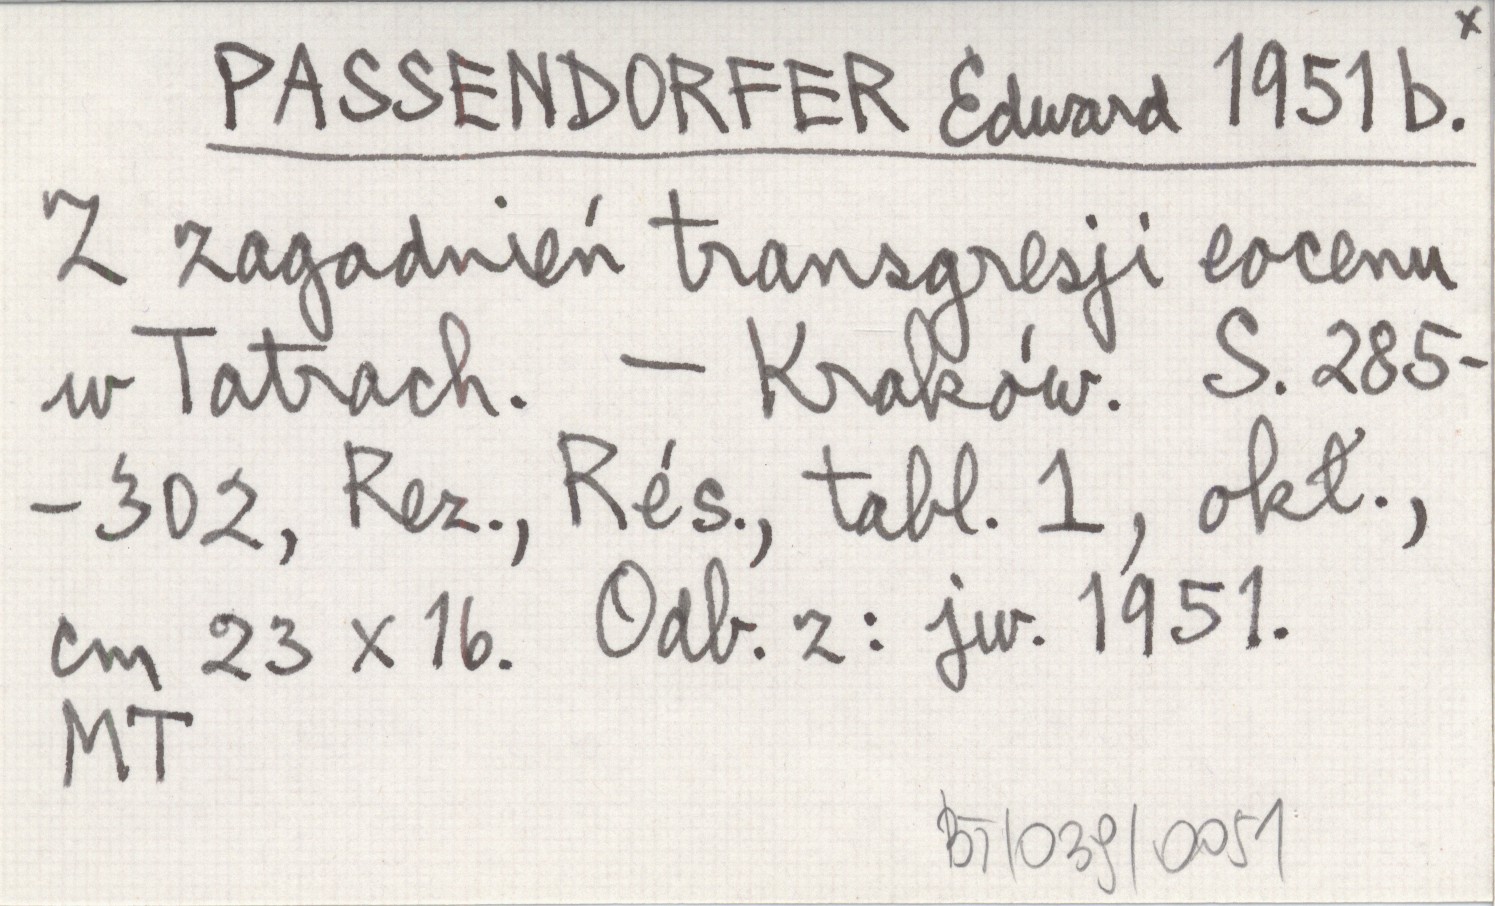 x
PASSENDORFER Edward 1951 b.
Z zagadnień transgresji eocenu
w Tatrach. — Kraków. S. 285-
-302, Rez., Rés., tabl. 1, okł.,
cm 23 x 16. Odb. z: jw. 1951.
MT
BT/039/0051